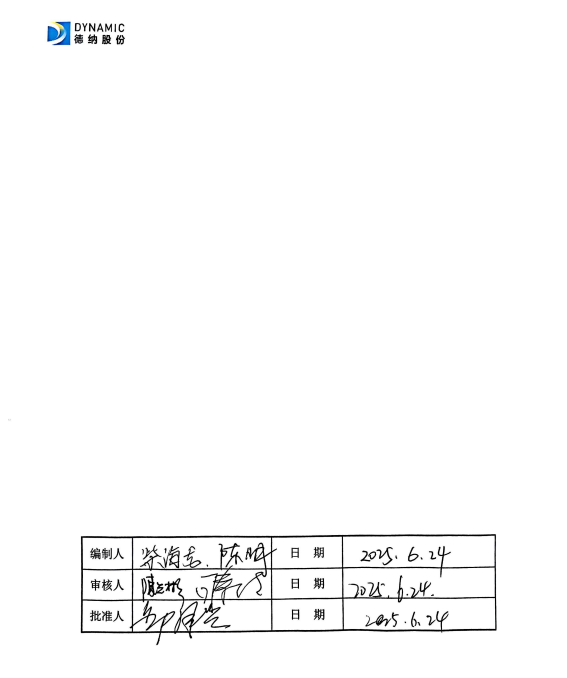 DYNAMIC
德纳股份
编制人 柴海志、陈鹏 日 期 2025.6.24
审核人 日 期 2025.6.24.
批准人 日 期 2025.6.24